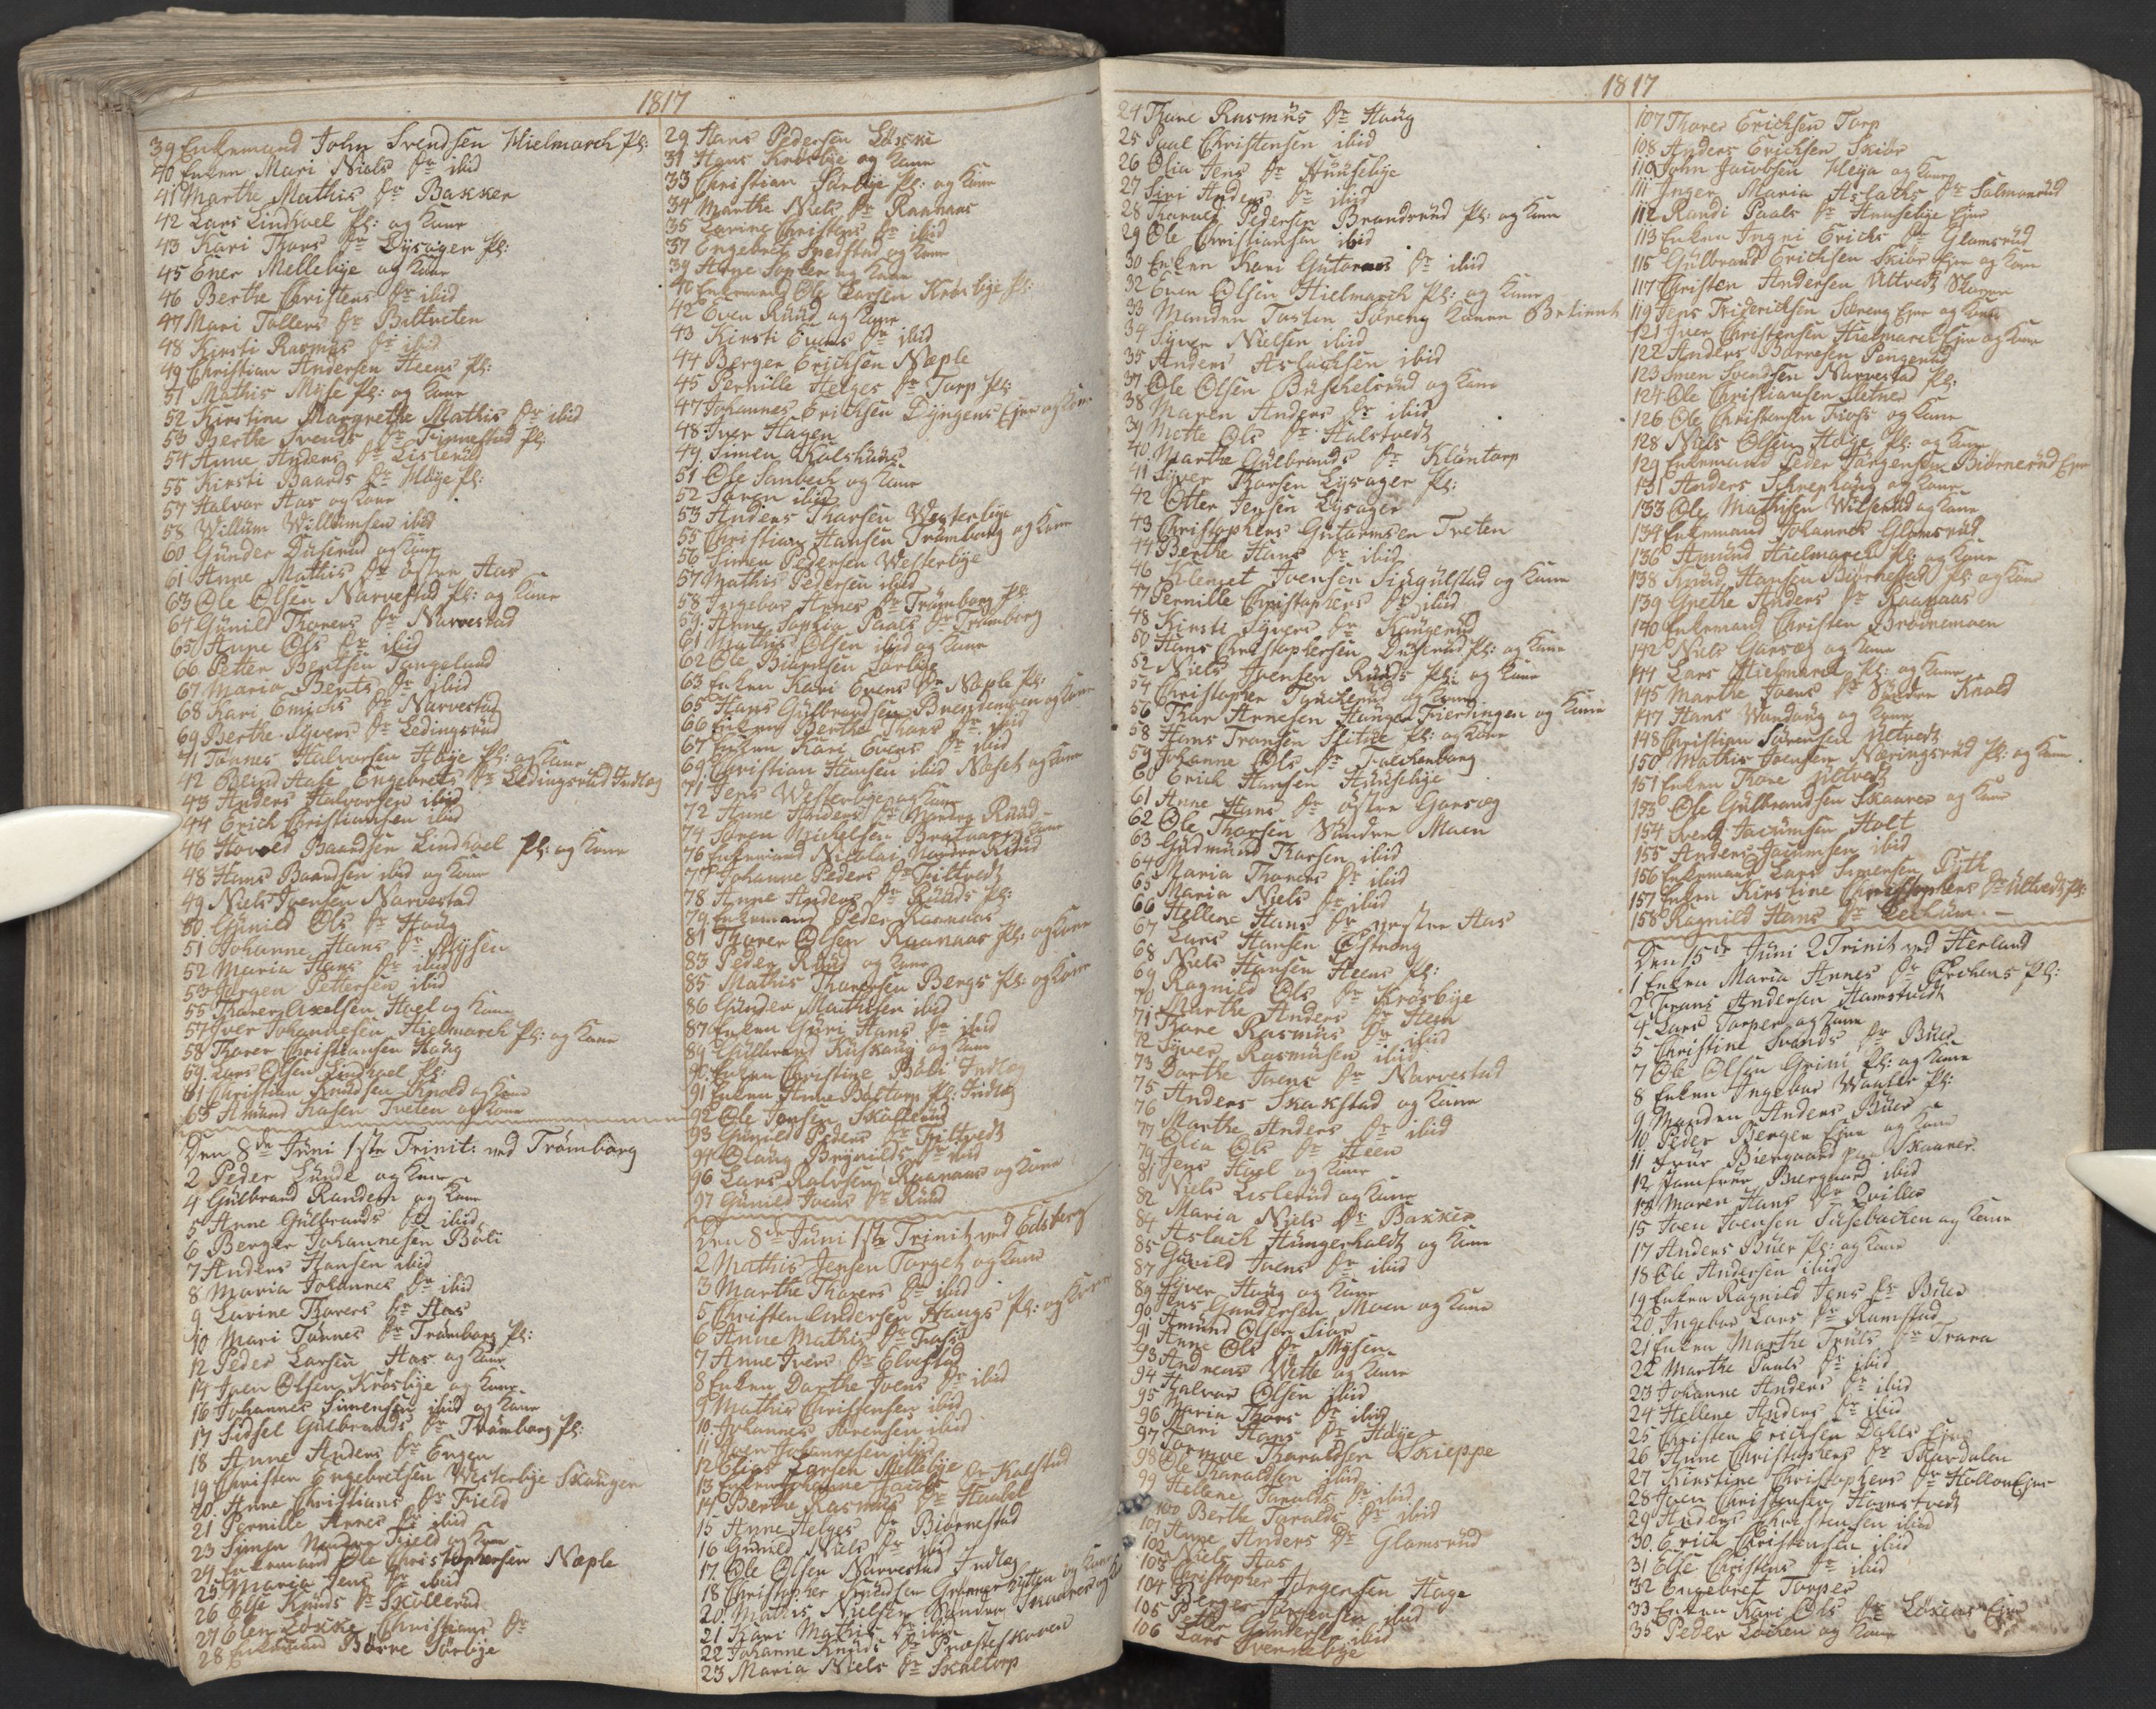 1817
39 Enkemand John Svendsen Hielmarch Pl:
40 Enken Mari Niels Dr ibid
41 Marthe Mathis Dr Bakken
42 Lars Lindhoel Pl: og Kone
43 Kari Thors Dr Lysager Pl:
45 Ener Mellebye og Kone
46 Berthe Christens Dr ibid
47 Mari Tollevs Dr
48 Kirsti Rasmus Dr ibid
49 Christian Andersen Heens Pl:
51 Mathis Myse Pl: og Kone
52 Kirstine Margrethe Mathis Dr ibid
53 Berthe Svends Dr Finnestad Pl:
54 Anne Anders Dr Lislerud
55 Kirsti Baards Dr Pl:
57 Halvor Aas og Kone
58 Willum Willumsen ibid
60 Gunder Duserud og Kone
61 Anne Mathis Dr østre Aas
63 Ole Olsen Narvestad Pl: og Kone
64 Gunild Thorers Dr Narvestad
65 Anne Ols Dr ibid
66 Petter Bentsen Tangelund
67 Maria Bents Dr ibid
68 Kari Dr Narvestad
69 Berthe Syvers Dr Ledingsrud
41 Tønnes Halvorsen Pl: og Kone
42 Engebrets Dr Ledingsrud Indlæg
43 Anders Halvorsen ibid
44 Erich Christiansen ibid
46 Baardsen Lindhoel Pl: og Kone
48 Hans Baardsen ibid og Kone
49 Niels Joensen Narvestad
50 Gunild Ols Dr Houg
51 Johanne Hans Dr Mysen
52 Maria Hans Dr ibid
53 Jørgen Pettersen ibid
55 Thorer Axelsen Hoel og Kone
57 Iver Johannesen Hielmarch Pl: og Kone
58 Thorer Christiansen Haug
59 Lars Olsen Lindhoel Pl:
61 Christian Knudsen Knold og Kone
63 Amund Tveten og Kone
Den 8de Juni 1ste Trinit: ved Trømborg
2 Peder Lunde og Kone
4 Gulbrand Randem og Kone
5 Anne Gulbrands Dr ibid
6 Berger Johannesen Bøli
7 Anders Hansen ibid
8 Maria Johannes Dr ibid
9 Lavine Thorers Dr Aas
10 Mari Tønnes Dr Trømborg Pl:
12 Peder Larsen Aas og Kone
14 Joen Olsen Krosbye og Kone
16 Johannes Simensen ibid og Kone
17 Sidsel Gulbrands Dr Trømborg Pl:
18 Anne Anders Dr Engen
19 Christen Engebretsen Westerbye Skougen
20 Anne Christians Dr Field
21 Pernille Arnes Dr ibid
23 Simen Nordre Field og Kone
24 Enkemand Ole Christophersen Næple
25 Maria Jens Dr ibid
26 Else Knuds Dr Skollerud
27 Elen Løkke Christians Dr
28 Enkemand Børre Sørbye
29 Hans Pedersen Løkke
31 Hans Krosbye og Kone
33 Christian Sørbye Pl: og Kone
34 Marthe Niels Dr Raanaas
35 Karine Christens Dr ibid
37 Engebret Spedstad og Kone
39 Arne Sopler og Kone
40 Enkemand Ole Larsen Krosbye Pl:
42 Even Ruud og Kone
43 Kirsti Evens Dr ibid
44 Berger Erichsen Næple
45 Pernille Helges Dr Torp Pl:
47 Johannes Erichsen Dyngens Ejer og Kone
48 Iver Hagen
49 Simen Kolshuus
51 Ole Sandbech og Kone
52 Søren ibid
53 Anders Thorsen Westerbye
55 Christian Hansen Trømborg og Kone
56 Simen Pedersen Westerbye
57 Mathis Pedersen ibid
58 Ingebor Arnes Dr Trømborg Pl:
59 Anne Sophia Paals Dr Trømborg
61 Mathis Olsen ibid og Kone
62 Ole Sørbye
63 Enken Kari Evens Dr Næple Pl:
65 Hans Gulbrandsen Brendemoen og Kone
66 Enken Berthe Thors Dr ibid
67 Enken Kari Evens Dr ibid
69 Christian Hansen ibid Næset og Kone
71 Jens Westerbye og Kone
72 Anne Anders Dr Nordre Ruud
74 Søren Michelsen og Kone
76 Enkemand Nicolai Nordre Ruud
77 Johanne Peders Dr Tiltvedt
78 Anne Anders Dr Ruuds Pl:
79 Enkemand Peder Raanaas
81 Thorer Olsen Raanaas Pl: og Kone
83 Peder Ruud og Kone
85 Mathis Thoresen Bergs Pl: og Kone
86 Gunder Mathisen ibid
87 Enken Guri Hans Dr ibid
89 Gulbrand Kuskaug og Kone
90 Enken Christine Bøli Indlæg
91 Enken Anne Bøstorp Pl: Indlæg
92 Ole Jensen Skollerud
93 Gunild Peders Dr Tiltvedt
94 Olaug Brynilds Dr ibid
96 Lars Rolvsen Raanaas og Kone
97 Gunild Joens Dr Ruud
Den 8de Juni 1ste Trinit ved Edsberg
2 Mathis Jensen Torget og Kone
3 Marthe Thorers Dr ibid
5 Christen Andersen Haugs Pl: og Kone
6 Anne Mathis Dr
7 Anne Ivers Dr Elvestad
8 Enken Dorthe Joens Dr ibid
9 Mathis Christensen ibid
10 Johannes Sørensen ibid
11 Joen Johannesen ibid
12 Elias Larsen Mellebye
13 Enken Johanne Jacobs Dr Kolstad
14 Berthe Rasmus Dr
15 Anne Helges Dr Biørnestad
16 Gunild Niels Dr ibid
17 Ole Olsen Narvestad Indlæg
18 Christopher Knudsen og Kone
20 Mathis Nielsen Søndre Skaarer og
21 Kari Mathis Dr ibid
22 Johanne Knuds Dr Præsteskoven
23 Maria Niels Dr Skeltorp
1817
24 Thore Rasmus Dr Haug
25 Paal Christensen ibid
26 Olia Jens Dr Huuselbye
27 Siri Anders Dr ibid
28 Tharald Pedersen Brandsrud Pl: og Kone
29 Ole Christiansen ibid
30 Enken Kari Gutorms Dr ibid
32 Even Olsen Hielmarch Pl: og Kone
33 Manden Torsten Sæteng Konen Betient
34 Syver Nielsen ibid
35 Anders Aslachsen ibid
37 Ole Olsen Buskelsrud og Kone
38 Maren Anders Dr ibid
39 Mette Ols Dr Halstvedt
40 Marthe Gulbrands Dr Kløntorp
41 Syver Thorsen Lysager Pl:
42 Otter Jensen Lysager
43 Christophers Gutormsen Tveten
44 Berthe Hans Dr ibid
46 Klemet Joensen Singulstad og Kone
47 Pernille Christophers Dr ibid
48 Kirsti Syvers Dr Kaugerud
50 Hans Christophersen Duserud Pl: og Kone
52 Niels Joensen Ruuds Pl: og Kone
54 Christopher og Kone
56 Thor Arnesen Haugen Fierdingen og Kone
58 Hans Fransen Slitue Pl: og Kone
59 Johanne Ols Dr Falchenborg
60 Erich Hansen Huuselbye
61 Anne Hans Dr østre Gorseg
62 Ole Thorsen Søndre Moen
63 Gudmund Thorsen ibid
64 Maria Thorers Dr ibid
65 Maria Niels Dr ibid
66 Hellene Hans Dr vestre Aas
67 Lars Hansen Østreng
68 Niels Hansen Heens Pl:
69 Ragnild Ols Dr Krosbye
70 Marthe Anders Dr Heen
71 Thore Rasmus Dr ibid
72 Syver Rasmusen ibid
73 Dorthe Joens Dr Narvestad
75 Anders Skakstad og Kone
76 Marthe Anders Dr ibid
77 Olia Ols Dr Heen
79 Jens Hoel og Kone
81 Niels Lislerud og Kone
82 Maria Niels Dr Bakke
84 Aslach Hungerholdt og Kone
85 Gunild Joens Dr ibid
87 Syver Haug og Kone
89 Jens Gundersen Moen og Kone
90 Amund Olsen
91 Anne Ols Dr Mysen
93 Andreas Wette og Kone
94 Halvor Olsen ibid
95 Maria Thors Dr ibid
96 Kari Hans Dr Haye
97 Tormoe Tharaldsen Skieppe
98 Ole Tharaldsen ibid
99 Hellene Taralds Dr ibid
100 Berthe Taralds Dr ibid
101 Anne Anders Dr Glamsrud
102 Niels Aas
103 Christopher Jørgensen Hage
104 Berger Jørgensen ibid
105 Petter Gundersen ibid
106 Lars Svennebye
107 Thorer Erichsen Torp
108 Anders Erichsen Skibr
110 John Jacobsen Heja og Kone
111 Inger Maria Aslachs Dr Salmonrud
112 Randi Paals Dr Huuselbye Ejer
113 Enken Ingri Erichs Dr Glamsrud
115 Gulbrand Erichsen Skibr Ejer og Kone
117 Christen Andersen Ultvedt Skoven
119 Jens Friderichsen Sæteng Ejer og Kone
121 Iver Christensen Hielmarch Ejer og Kone
122 Anders Børresen Pengerud
123 Simen Svendsen Narvestad Pl:
124 Ole Christiansen Sletner
126 Ole Christensen Trios og Kone
128 Niels Olsen Haye Pl: og Kone
129 Enkemand Peder Jørgensen Biørnerud Ejer
131 Anders og Kone
133 Ole Mathisen Wilserud og Kone
134 Enkemand Johannes Glamsrud
136 Amund Hielmarch Pl: og Kone
138 Knud Hansen Biørnestad Pl: og Kone
139 Grethe Anders Dr Raanaas
140 Enkemand Christen Brønnemoen
142 Niels Gorseg og Kone
144 Lars Hielmarch Pl: og Kone
145 Marthe Joens Dr Søndre Knold
147 Hans Wandaug og Kone
148 Christian Sørensen Ultvedt
150 Mathis Joensen Næringsrud Pl: og Kone
151 Enken Thore Ultvedt
153 Ole Gulbrandsen Skaarer og Kone
154 Svend Jacumsen Holt
155 Anders Jacumsen ibid
156 Enkemand Lars Simensen
157 Enken Kirstine Christophers Dr Ultvedt Pl:
158 Ragnild Hans Dr
Den 15de Juni 2 Trinit ved Herland
1 Enken Maria Annes Dr Pl:
2 Frans Andersen Hamstvedt
4 Lars Torper og Kone
5 Christine Svends Dr Buer
7 Ole Olsen Grini Pl: og Kone
8 Enken Ingebor Waaler Pl:
9 Manden Anders Buer
10 Peder Bergen Ejer og Kone
11 Frue Biergaard paa Skaarer
12 Jomfrue Biergaard ibid
14 Maren Hans Dr Qviller
15 Joen Joensen Tusebachen og Kone
17 Anders Buer Pl: og Kone
18 Ole Andersen ibid
19 Enken Ragnild Jens Dr Buer
20 Ingebor Lars Dr Ramstad
21 Enken Marthe Truls Dr Trara
22 Marthe Paals Dr ibid
23 Johanne Anders Dr ibid
24 Hellene Anders Dr ibid
25 Christen Erichsen Dahls Ejer
26 Anne Christophers Dr Skardalen
27 Kirstine Christophers Dr Ejer
28 Joen Christensen Hamstvedt
29 Anders Christensen ibid
30 Erich Christensen ibid
31 Else Christens Dr ibid
32 Engebret Torper
33 Enken Kari Ols Dr Løkens Ejer
35 Peder Løchen og Kone